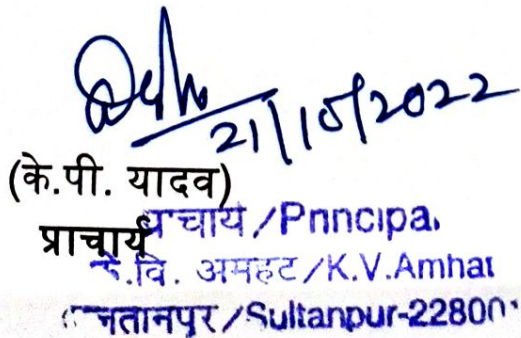 21/10/2022
(के.पी. यादव)
प्राचार्य
प्राचार्य/Principal
के.वि. अमहट/K.V.Amhat
सुलतानपुर/Sultanpur-22800